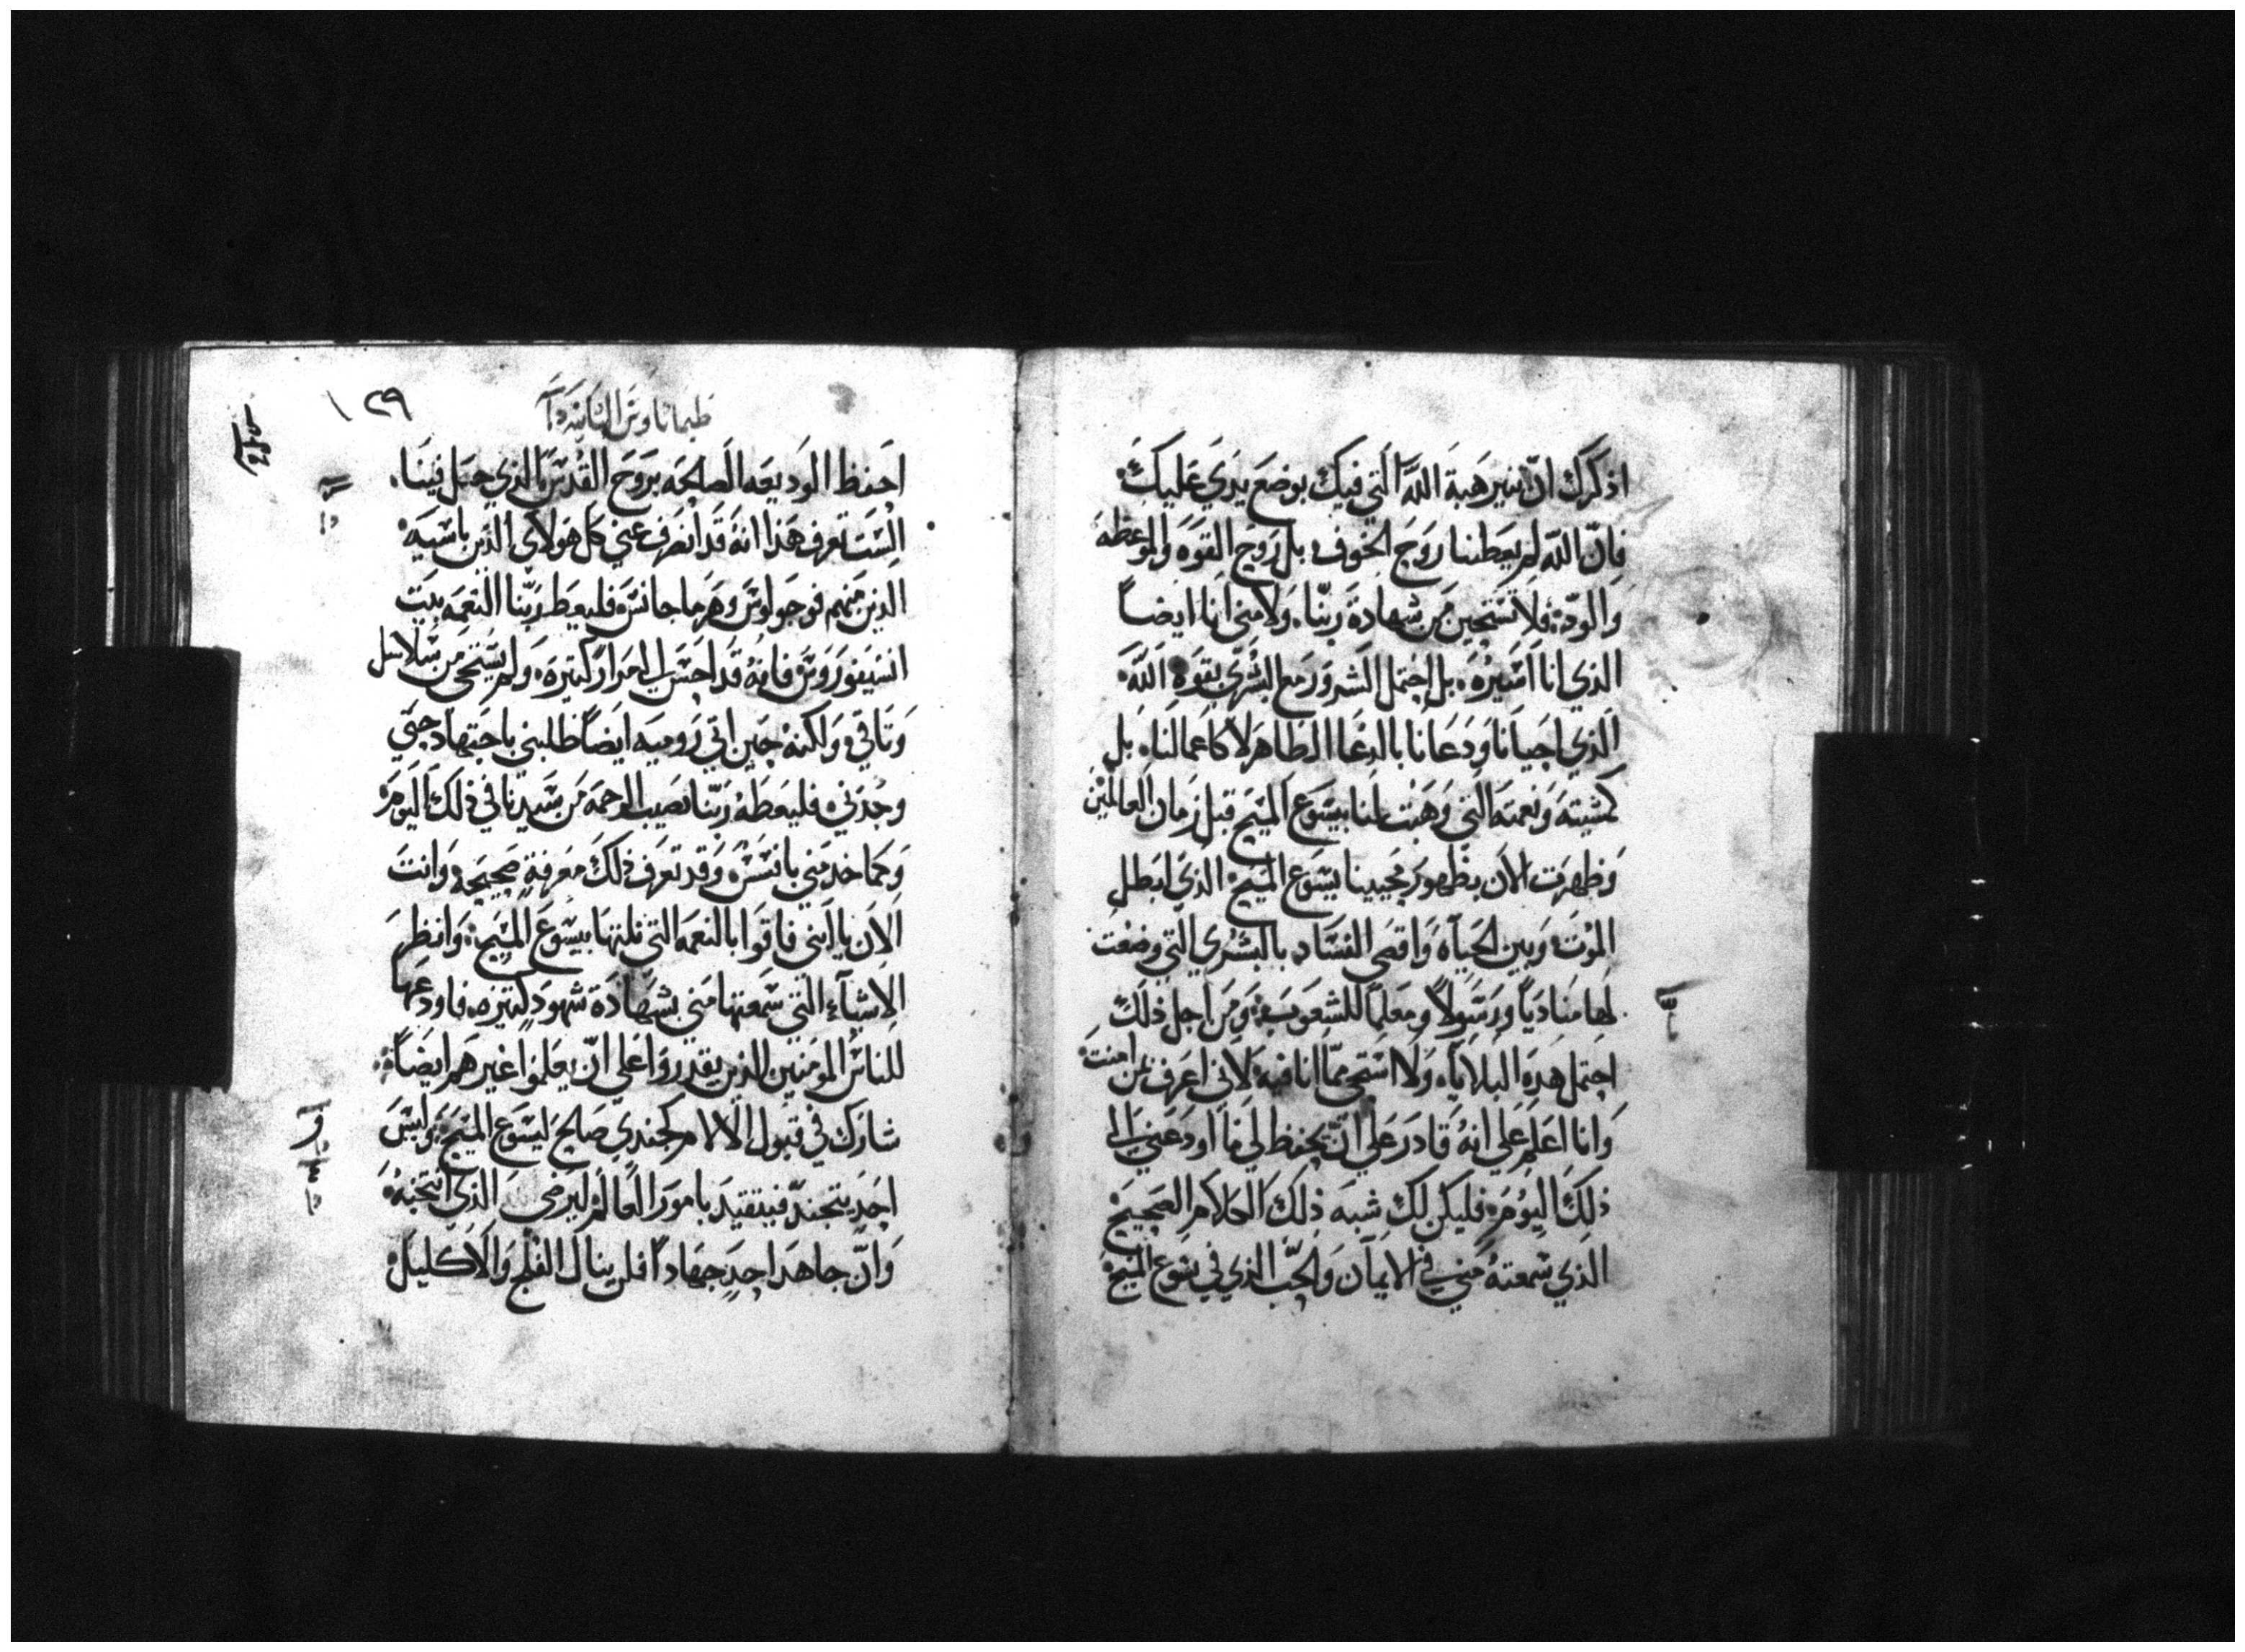 اذكرك ان تنير هبة الله التي فيك بوضع يدي عليك
فان الله لم يعطنا روح الخوف بل روح القوه والموعظه
والود فلا تستحين من شهادة ربنا ولا مني انا ايضاً
الذي انا اسيره بل احتمل الشرور مع البشرى بقوه الله
الذي احيانا ودعانا بالدعا الطاهر لا كاعمالنا بل
كمشيته ونعمته التي وهبت لنا بيسوع المسيح قبل زمان العالمين
وظهرت الان بظهور محيينا يسوع المسيح الذي ابطل
الموت وبين الحياه واقصى الفساد بالبشري التي وضعت
لها مناديا ورسولاً ومعلما للشعوب ومن اجل ذلك
احتمل هذه البلايا ولا استحي مما انا فيه لاني اعرف بمن امنت
وانا اعلم على انه قادر على ان يحفظ لي ما اودعني الى
ذلك اليوم فليكن لك شبه ذلك الكلام الصحيح
الذي سمعته مني في الايمان والحب الذي في يسوع المسيح
١٢٩
طيماناوس الثانيه
احفظ الوديعه الصالحه بروح القدس الذي حل فينا
الست تعرف هذا انه قد انصرف عني كل هولاي الذين باسيه
الذين منهم فوجولوس وهرماجانس فليعط ربنا النعمه بيت
انسيفوروس فانه قد احسن الي امرار كثيره ولم يستحي من سلاسل
وثاقي ولكنه حين اتى روميه ايضاً طلبني باجتهاد حتى
وجدني فليعطه ربنا نصيب الرحمه من سيدنا في ذلك اليوم
وكما خدمني بافسس وقد تعرف ذلك معرفة صحيحه وانت
الان يا ابني فاقوا بالنعمه التي نلتها بيسوع المسيح وانظر
الاشيآء التي سمعتها مني بشهادة شهود كثيره فاودعها
للناس المومنين الذين يقدروا على ان يعلموا غيرهم ايضاً
شارك في قبول الالام كجندي صالح ليسوع المسيح وليس
احد يتجند فيتقيد بامور العالم ليرضي الذي انتخبه
وان جاهد احد جهاداً فلن ينال الفلج والاكليل